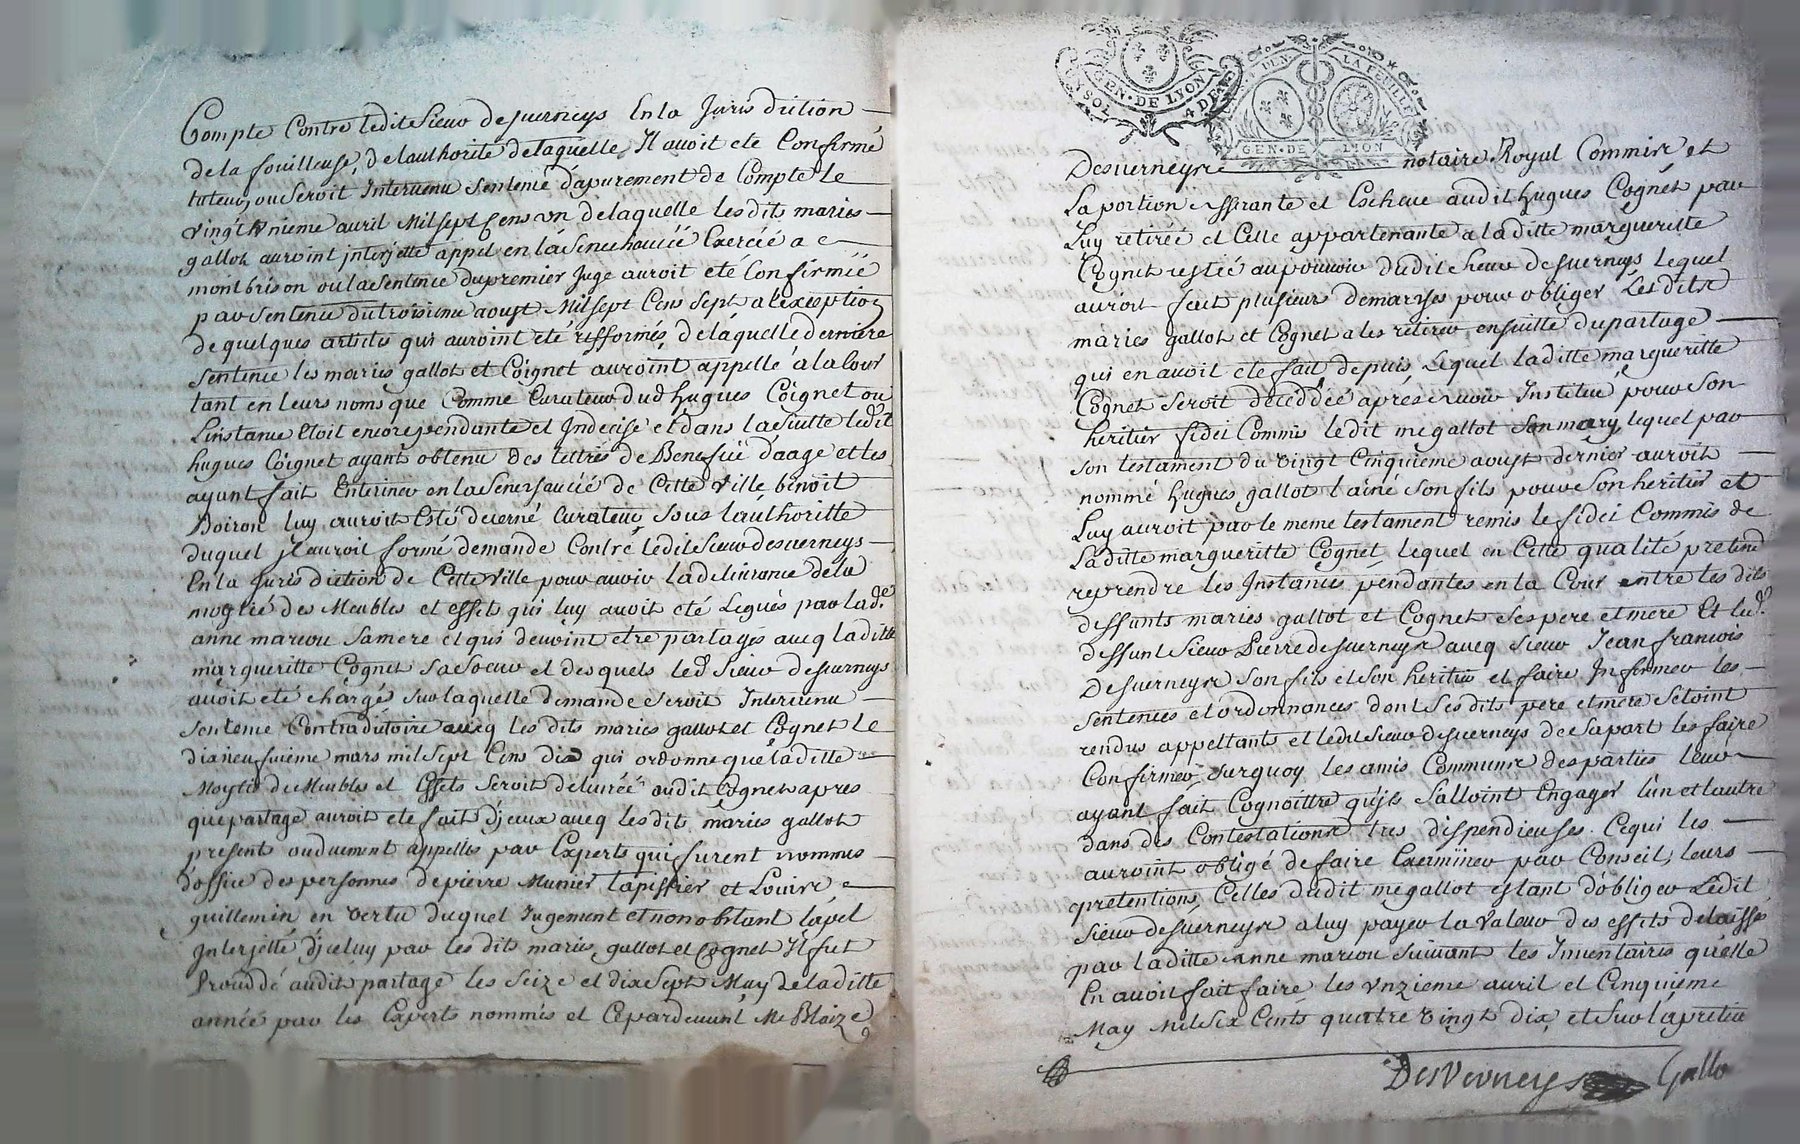 Compte Contre ledit Sieur desverneys En la Jurisdiction
de la fouilleuse, de lauthorité de laquelle Il avoit ete Confirmé
tuteur, ou Seroit Intervenu Sentence dapurement de Compte le
vingt Vnieme avril Mil sept Cens vn de laquelle les dits maries
gallot auroint interjetté appel en la Senechaucéé Exercéé a
montbrison ou la Sentence du premier Juge auroit eté Confirméé
par Sentence du troisieme aoust Mil sept Cens Sept a lexception
de quelques articles qui auroint eté refformés, de laquelle derniere
Sentence les maries gallot et Coignet auroint appellé a la Cour
tant en leurs noms que Comme Curateur dud hugues Coignet ou
Linstance Etoit encore pendante et Indecise et dans la Suitte ledit
hugues Coignet ayant obtenu des lettres de Benefice daage et les
ayant fait Enteriner en la Senechaucéé de Cette Ville benoit
Doiron luy auroit Esté decerné Curateur Sous lauthoritte
duquel Il auroit formé demande Contre ledit Sieur desverneys
En la Jurisdiction de Cette Ville pour avoir la delivrance de la
moytié des Meubles et effets qui luy avoit eté Legués par lad.e
anne mariou Sa mere et qui devoint etre partagés avecq laditte
margueritte Cognet Sa Soeur et desquels led Sieur desverneys
avoit eté chargé Sur laquelle demande Seroit Intervenu
Sentence Contradictoire avecq les dits maries gallot et Cognet le
dixneufvieme mars mil Sept Cens dix qui ordonne que laditte
Moytié de Meubles et Effets Seroit délivréé audit Cognet apres
que partage auroit ete fait d'jceux avecq les dits maries gallot
presents ou duement appellés par Experts qui furent nommes
d'office des personnes de pierre Munier tapissier et Louise
guillemin en vertu duquel Jugement et nonobstant lapel
Interjetté d'jceluy par les dits maries gallot et Cognet Il fut
Procédé audit partage les Seize et dix Sept May de laditte
année par les Experts nommés et Ce pardevant Me Blaize
GEN · DE LYON
4 DEN
LA FEUILLE
GEN · DE LYON
Desverneyre notaire Royal Commise et
La portion afferante et Escheue audit hugues Cognet par
Luy retiréé et Celle appartenante a laditte margueritte
Cognet restéé au pouvoir dudit Sieur desverneys lequel
auroit fait plusieurs demarches pour obliger Lesdits
maries gallot et Cognet a les retirer, ensuitte du partage
qui en avoit ete fait depuis Lequel laditte margueritte
Cognet Seroit decedéé apres avoir Institué pour Son
heritier fidei Commis ledit me gallot Son mary, lequel par
Son testament du vingt Cinquieme aoust dernier auroit
nommé hugues gallot lainé Son fils pour Son heritier et
Luy auroit par le meme testament remis le fidei Commis de
Laditte margueritte Cognet, lequel en Cette qualité pretend
reprendre les Instances pendantes en la Cour entre les dits
deffunts maries gallot et Cognet Ses pere et mere Et led.
deffunt Sieur Pierre desverneys avecq Sieur Jean françois
Desverneys Son fils et Son heritier et faire Infirmer les
Sentences et ordonnances dont Ses dits pere et mere Setoint
rendus appellants et ledit Sieur desverneys de Sa part les faire
Confirmer, Surquoy les amis Communs des parties leur
ayant fait Cognoittre qujls Salloint Engager lun et lautre
dans des Contestations tres dispendieuses. Ce qui les
auroint obligé de faire Examiner par Conseils leurs
pretentions Celles dudit me gallot estant d'obliger Ledit
Sieur desverneys a luy payer la Valeur des effets delaissés
par laditte anne mariou Suivant les Inventaires quelle
En avoit fait faire les vnzieme avril et Cinquieme
May Mil Six Cents quatre vingt dix, et Sur lapretiee
DesVerneys Gallo